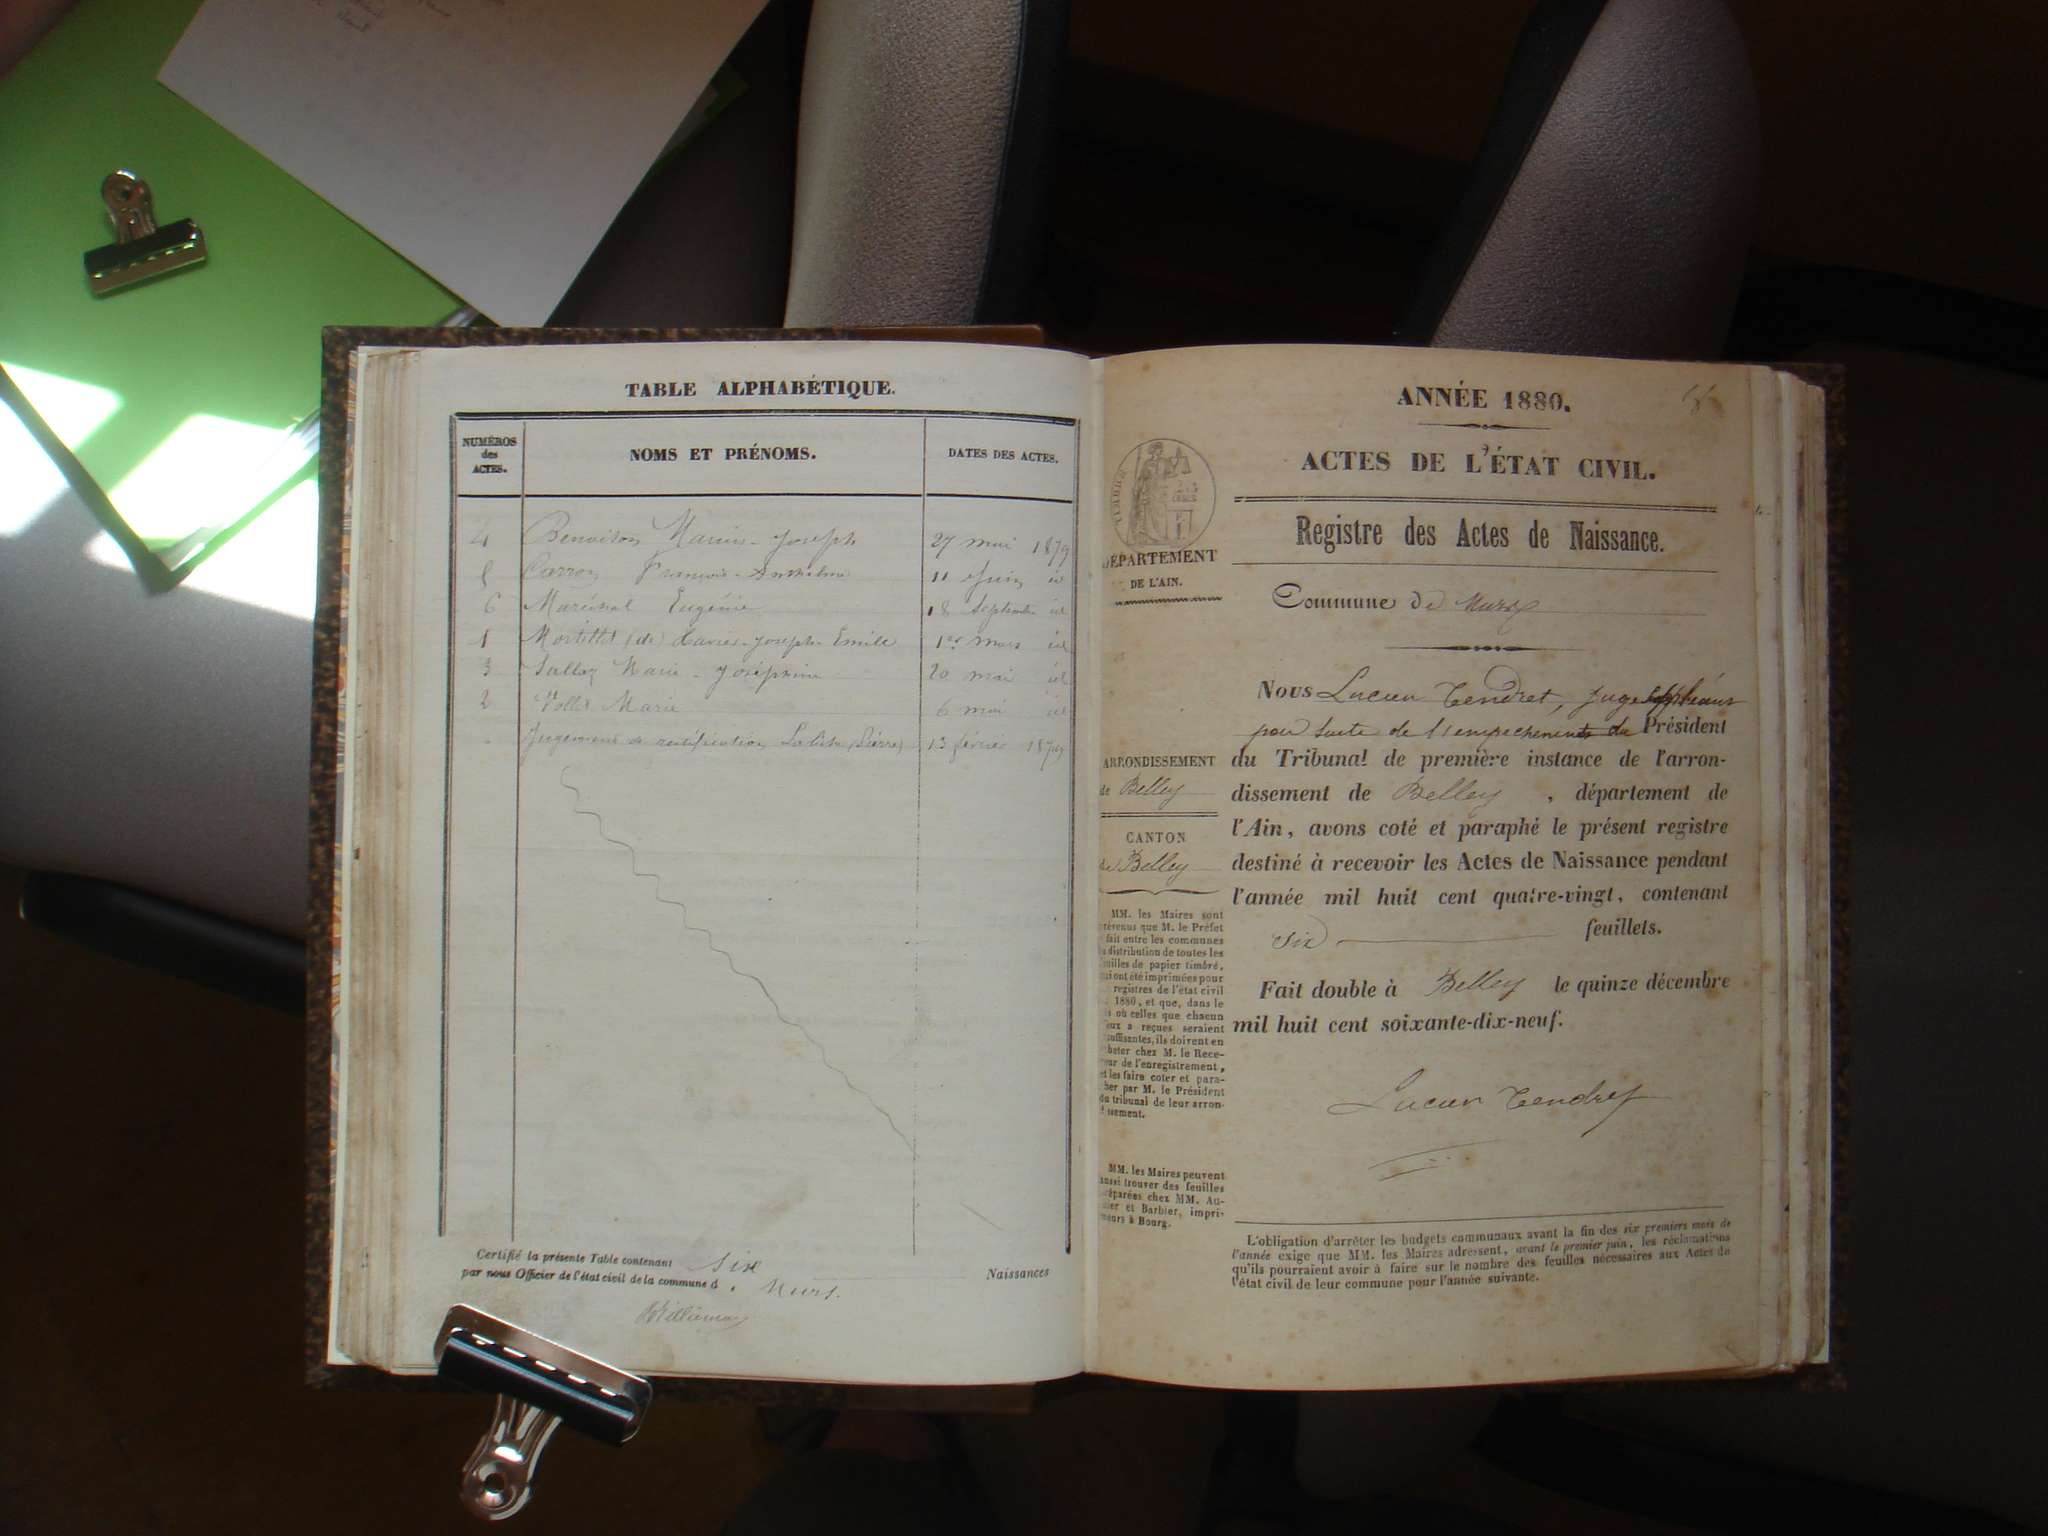 TABLE ALPHABÉTIQUE.
NUMÉROS
des
ACTES.
NOMS ET PRÉNOMS.
DATES DES ACTES.
4 Benoiton Marius-Joseph 27 mai 1879
Carron François-Anthelme 11 Juin id
6 Maréchal Eugénie 18 Septembre id
1 Mortillet (de) Xavier-Joseph-Emile 1er mars id
3 Sallaz Marie-Joséphine 20 mai id
2 Vollet Marie 6 mai id
Jugement de rectification (Pierre) 13 février 1879
Certifié la présente Table contenant six Naissances
par nous Officier de l'état civil de la commune d Murs.
ANNÉE 1880.
ACTES DE L'ÉTAT CIVIL.
Registre des Actes de Naissance.
TIMBRE
DÉPARTEMENT
DE L'AIN.
Commune de Murs
Nous Lucien Tendret, juge suppléant
pour suite de l'empechement du Président
du Tribunal de première instance de l'arron-
dissement de Belley, département de
l'Ain, avons coté et paraphé le présent registre
destiné à recevoir les Actes de Naissance pendant
l'année mil huit cent quatre-vingt, contenant
six feuillets.
Fait double à Belley le quinze décembre
mil huit cent soixante-dix-neuf.
Lucien Tendret
ARRONDISSEMENT
de Belley
CANTON
de Belley
MM. les Maires sont
prévenus que M. le Préfet
fait entre les communes
la distribution de toutes les
feuilles de papier timbré,
qui ont été imprimées pour
registres de l'état civil
1880, et que, dans le
cas où celles que chacun
d'eux a reçues seraient
insuffisantes, ils doivent en
acheter chez M. le Rece-
veur de l'enregistrement,
et les faire coter et para-
pher par M. le Président
du tribunal de leur arron-
dissement.
MM. les Maires peuvent
aussi trouver des feuilles
préparées chez MM. Au-
et Barbier, impri-
meurs à Bourg.
L'obligation d'arrêter les budgets communaux avant la fin des six premiers mois de
l'année exige que MM. les Maires adressent, avant le premier juin, les réclamations
qu'ils pourraient avoir à faire sur le nombre des feuilles nécessaires aux Actes de
l'état civil de leur commune pour l'année suivante.